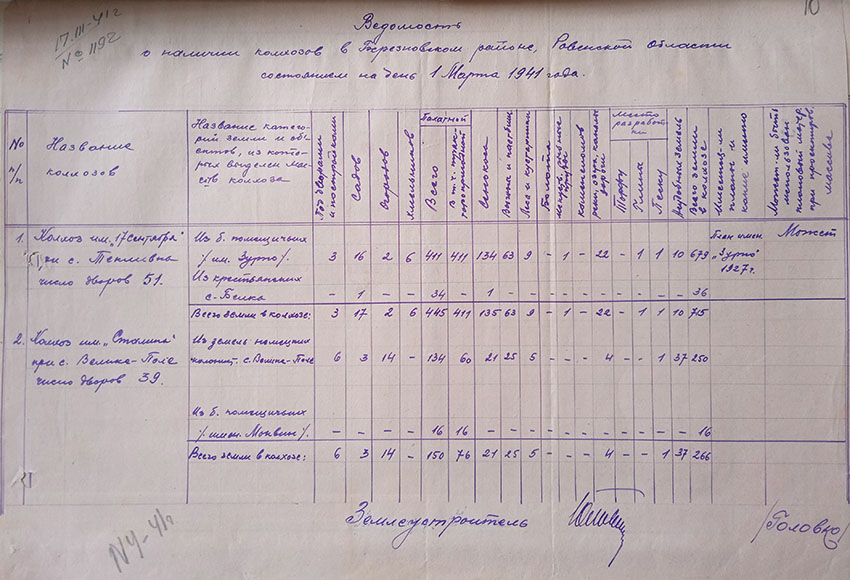 17.III-41г
№ 1192
10
Ведомость
о наличии колхозов в Березновском районе, Ровенской Области
состоянием на день 1 Марта 1941 года.
№ п/п
Название колхозов
Название катего-
рий земли и объ-
ектов, из кото-
рых выделен мас-
сив колхоза
Под дворами и постройками
Садов
Огородов
Хмельников
Полатной
Всего
В т.ч.
Сенокоса
Выгона и пастбищ
Леса и кустарники
Болота
Под реки, озера, каналы дороги
Место разработ-
ки
Торфу
Глина
Песку
Неудобных земель
Всего земли в колхозе
Имеется-ли план и какие именно
Может-ли быть использован плановой матер. при проектиров. массива
1. Колхоз им. "17 Сентября" Из б. помещичьих План имен. Может
при с. /им. Зурно/. 3 16 2 6 411 411 134 63 9 - 1 - 22 - 1 1 10 679 "Зурно"
число дворов 51. Из крестьянских 1927 г.
с-Белка - 1 - - 34 - 1 - - - - - - - - - - 36
Всего земли в колхозе: 3 17 2 6 445 411 135 63 9 - 1 - 22 - 1 1 10 715
2. Колхоз им. "Сталина" Из земель немецких
при с. Велика-Поле колонит. с. Велика-Поле 6 3 14 - 134 60 21 25 5 - - - 4 - - 1 37 250
число дворов 39.
Из б. помещичьих
/имен. Моквин/. - - - - 16 16 - - - - - - - - - - - 16
Всего земли в колхозе: 6 3 14 - 150 76 21 25 5 - - - 4 - - 1 37 266
Землеустроитель /Головко/
N4-41г